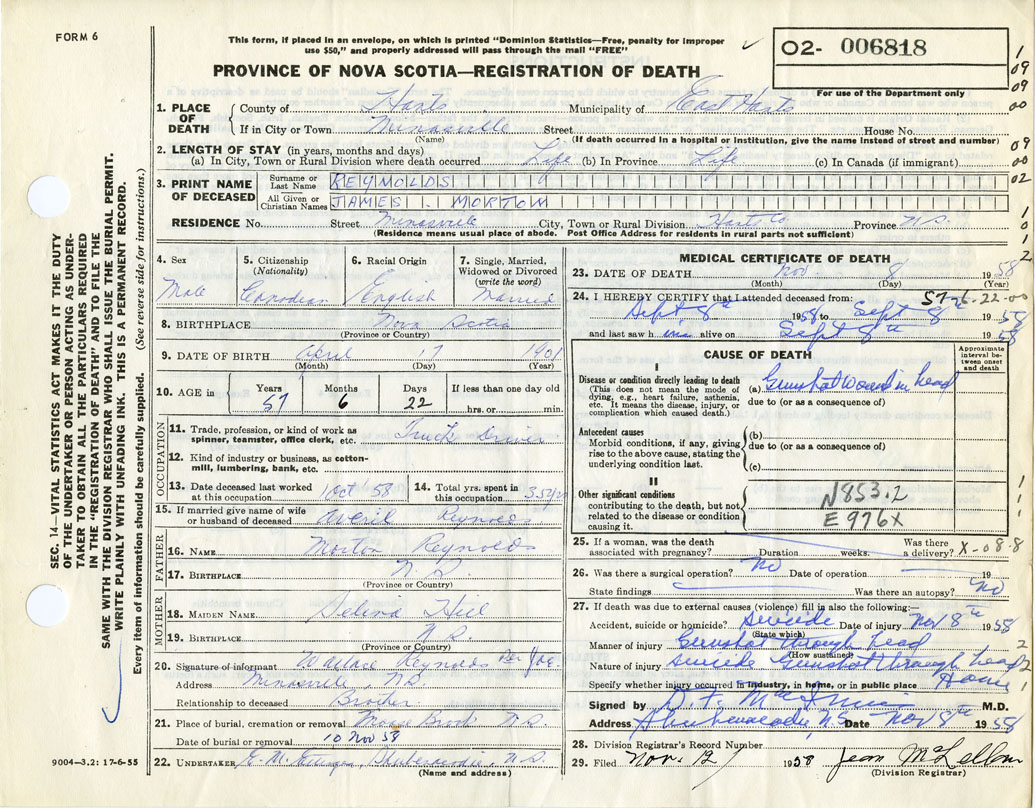 FORM 6
This form, if placed in an envelope, on which is printed "Dominion Statistics—Free, penalty for improper
use $50," and properly addressed will pass through the mail "FREE"
02- 006818
For use of the Department only
PROVINCE OF NOVA SCOTIA—REGISTRATION OF DEATH
1. PLACE OF DEATH County of Hants Municipality of East Hants
If in City or Town Minasville Street House No.
(Name) (If death occurred in a hospital or institution, give the name instead of street and number)
2. LENGTH OF STAY (in years, months and days)
(a) In City, Town or Rural Division where death occurred Life (b) In Province Life (c) In Canada (if immigrant)
3. PRINT NAME OF DECEASED Surname or Last Name REYNOLDS
All Given or Christian Names JAMES . MORTON
RESIDENCE No. Street Minasville City, Town or Rural Division Hants Co Province N.S.
(Residence means usual place of abode. Post Office Address for residents in rural parts not sufficient)
4. Sex Male
5. Citizenship (Nationality) Canadian
6. Racial Origin English
7. Single, Married, Widowed or Divorced (write the word) Married
8. BIRTHPLACE Nova Scotia
(Province or Country)
9. DATE OF BIRTH April 17 1901
(Month) (Day) (Year)
10. AGE in Years 57 Months 6 Days 22 If less than one day old hrs. or min.
OCCUPATION
11. Trade, profession, or kind of work as spinner, teamster, office clerk, etc. Truck Driver
12. Kind of industry or business, as cotton-mill, lumbering, bank, etc.
13. Date deceased last worked at this occupation 1 Oct 58
14. Total yrs. spent in this occupation 35 yrs
15. If married give name of wife or husband of deceased Averil Reynolds
FATHER
16. NAME Morton Reynolds
17. BIRTHPLACE N.S.
(Province or Country)
MOTHER
18. MAIDEN NAME Selina Hill
19. BIRTHPLACE N.S.
(Province or Country)
20. Signature of informant Wallace Reynolds Per
Address Minasville, N.S.
Relationship to deceased Brother
21. Place of burial, cremation or removal Moose Brook N.S.
Date of burial or removal 10 Nov 58
22. UNDERTAKER E. M. Shubenacadie, N.S.
(Name and address)
MEDICAL CERTIFICATE OF DEATH
23. DATE OF DEATH Nov 8 1958
(Month) (Day) (Year)
57-6-22-00
24. I HEREBY CERTIFY that I attended deceased from:
Sept 8th 1958 to Sept 8th 1958
and last saw h im alive on Sept 8th 1958
CAUSE OF DEATH
Approximate interval between onset and death
I
Disease or condition directly leading to death (a) Gunshot Wound in head
(This does not mean the mode of dying, e.g., heart failure, asthenia, etc. It means the disease, injury, or complication which caused death.)
due to (or as a consequence of)
Antecedent causes
Morbid conditions, if any, giving rise to the above cause, stating the underlying condition last.
(b)
due to (or as a consequence of)
(c)
II
Other significant conditions contributing to the death, but not related to the disease or condition causing it.
N853.2
E976X
25. If a woman, was the death associated with pregnancy? Duration weeks. Was there a delivery? X-08-8
26. Was there a surgical operation? No Date of operation 19
State findings Was there an autopsy? No
27. If death was due to external causes (violence) fill in also the following:—
Accident, suicide or homicide? Suicide Date of injury Nov 8th 1958
(State which)
Manner of injury Gunshot through head
(How sustained)
Nature of injury suicide Gunshot through head
Specify whether injury occurred in industry, in home, or in public place Home
Signed by D. F. M.D.
Address Shubenacadie, N.S. Date Nov 8th 1958
28. Division Registrar's Record Number
29. Filed Nov. 12 1958 Jean McLellan
(Division Registrar)
SEC. 14—VITAL STATISTICS ACT MAKES IT THE DUTY
OF THE UNDERTAKER OR PERSON ACTING AS UNDER-
TAKER TO OBTAIN ALL THE PARTICULARS REQUIRED
IN THE "REGISTRATION OF DEATH" AND TO FILE THE
SAME WITH THE DIVISION REGISTRAR WHO SHALL ISSUE THE BURIAL PERMIT.
WRITE PLAINLY WITH UNFADING INK. THIS IS A PERMANENT RECORD.
Every item of information should be carefully supplied. (See reverse side for instructions.)
9004—3.2: 17-6-55
1
09
09
00
09
00
02
1
0
1
2
1
1
1
2
2
1